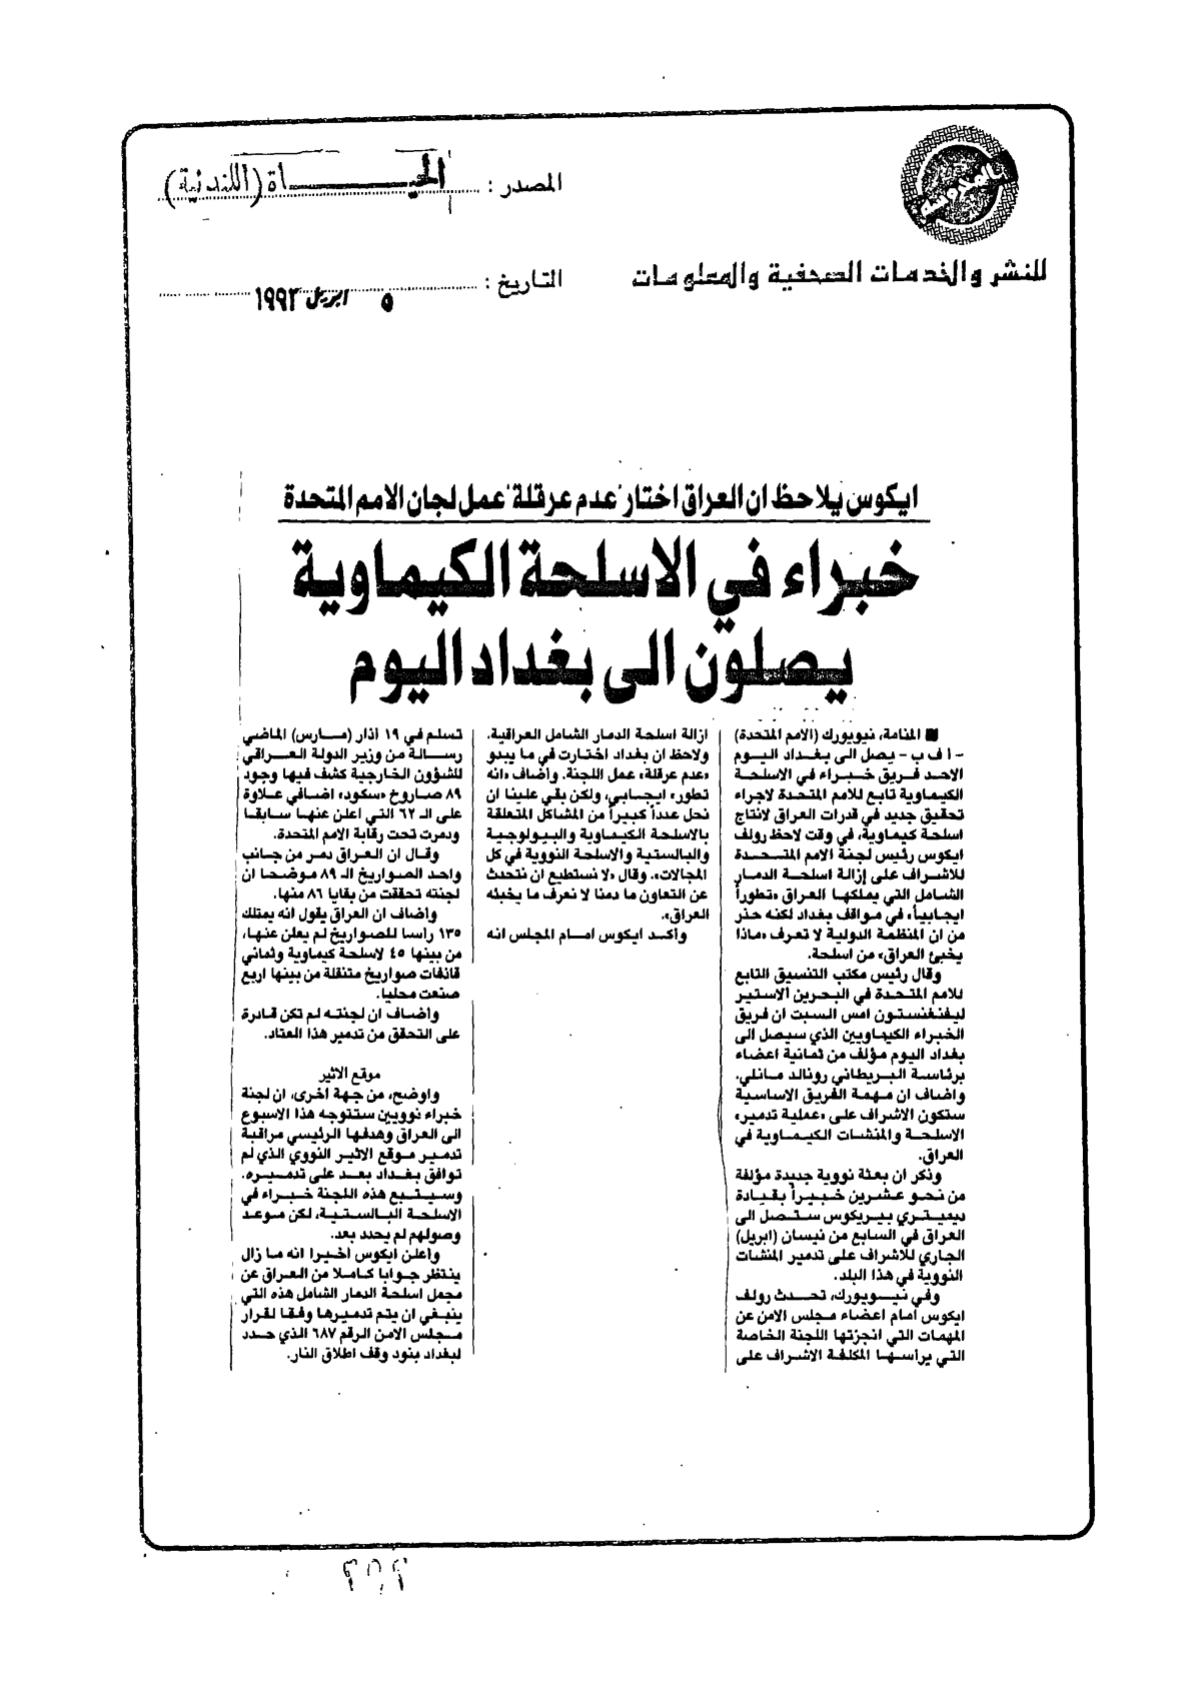 المصدر : الحيـــــاة (اللندنية)
للنشر والخدمات الصحفية والمعلومات
التاريخ : ٥ ابريل ١٩٩٢
ايكوس يلاحظ ان العراق اختار "عدم عرقلة" عمل لجان الامم المتحدة
خبراء في الاسلحة الكيماوية
يصلون الى بغداد اليوم
■ المنامة، نيويورك (الامم المتحدة)
- ا ف ب - يصل الى بغداد اليوم
الاحد فريق خبراء في الاسلحة
الكيماوية تابع للامم المتحدة لاجراء
تحقيق جديد في قدرات العراق لانتاج
اسلحة كيماوية، في وقت لاحظ رولف
ايكوس رئيس لجنة الامم المتحدة
للاشراف على إزالة اسلحة الدمار
الشامل التي يملكها العراق «تطوراً
ايجابياً» في مواقف بغداد لكنه حذر
من ان المنظمة الدولية لا تعرف «ماذا
يخبئ العراق» من اسلحة.
وقال رئيس مكتب التنسيق التابع
للامم المتحدة في البحرين الاستير
ليفنغستون امس السبت ان فريق
الخبراء الكيماويين الذي سيصل الى
بغداد اليوم مؤلف من ثمانية اعضاء
برئاسة البريطاني رونالد مانلي.
واضاف ان مهمة الفريق الاساسية
ستكون الاشراف على «عملية تدمير»
الاسلحة والمنشات الكيماوية في
العراق.
وذكر ان بعثة نووية جديدة مؤلفة
من نحو عشرين خبيراً بقيادة
ديميتري بيريكوس ستصل الى
العراق في السابع من نيسان (ابريل)
الجاري للاشراف على تدمير المنشات
النووية في هذا البلد.
وفي نيويورك، تحدث رولف
ايكوس أمام اعضاء مجلس الامن عن
المهمات التي انجزتها اللجنة الخاصة
التي يراسها المكلفة الاشراف على
ازالة اسلحة الدمار الشامل العراقية.
ولاحظ ان بغداد اختارت في ما يبدو
«عدم عرقلة» عمل اللجنة. واضاف «انه
تطور» ايجابي، ولكن بقي علينا ان
نحل عدداً كبيراً من المشاكل المتعلقة
بالاسلحة الكيماوية والبيولوجية
والبالستية والاسلحة النووية في كل
المجالات». وقال «لا نستطيع ان نتحدث
عن التعاون ما دمنا لا نعرف ما يخبئه
العراق».
واكد ايكوس امام المجلس انه
تسلم في ١٩ اذار (مارس) الماضي
رسالة من وزير الدولة العراقي
للشؤون الخارجية كشف فيها وجود
٨٩ صاروخ «سكود» اضافي علاوة
على الـ ٦٢ التي اعلن عنها سابقا
ودمرت تحت رقابة الامم المتحدة.
وقال ان العراق دمر من جانب
واحد الصواريخ الـ ٨٩ موضحا ان
لجنته تحققت من بقايا ٨٦ منها.
واضاف ان العراق يقول انه يمتلك
١٣٥ راسا للصواريخ لم يعلن عنها،
من بينها ٤٥ لاسلحة كيماوية وثماني
قاذفات صواريخ متنقلة من بينها اربع
صنعت محليا.
واضاف ان لجنته لم تكن قادرة
على التحقق من تدمير هذا العتاد.
موقع الاثير
واوضح، من جهة اخرى، ان لجنة
خبراء نوويين ستتوجه هذا الاسبوع
الى العراق وهدفها الرئيسي مراقبة
تدمير موقع الاثير النووي الذي لم
توافق بغداد بعد على تدميره.
وسيتبع هذه اللجنة خبراء في
الاسلحة البالستية، لكن موعد
وصولهم لم يحدد بعد.
واعلن ايكوس اخيرا انه ما زال
ينتظر جوابا كاملا من العراق عن
مجمل اسلحة الدمار الشامل هذه التي
ينبغي ان يتم تدميرها وفقا لقرار
مجلس الامن الرقم ٦٨٧ الذي حدد
لبغداد بنود وقف اطلاق النار.